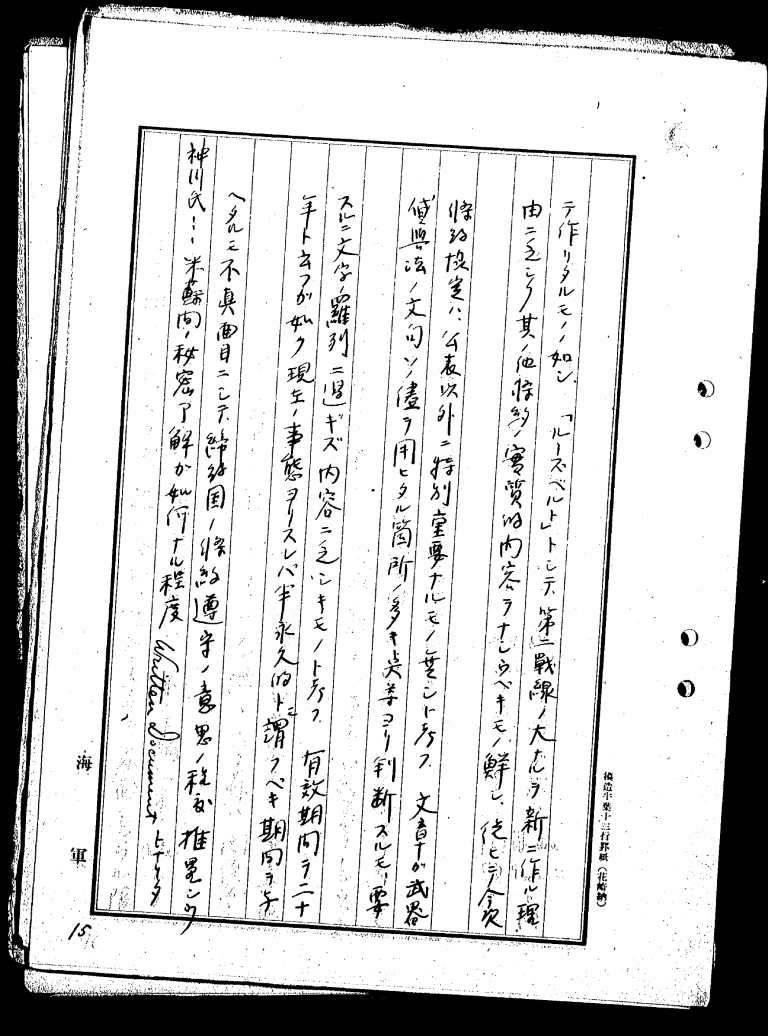 テ作リタルモノノ如シ、「ルーズベルト」トシテ、第二戰線ノ大ナルヲ新ニ作ル理
由ニ乏シク其ノ他條約ノ實質的内容ヲナシウベキモノ鮮シ、從ヒテ今次
條約協定ハ、公表以外ニ特別重要ナルモノ無シト考フ、文章ナドガ武器
貸與法ノ文句ソノ儘ヲ用ヒタル箇所ノ多キ点等ヨリ判斷スルモ、要
スルニ文字ノ羅列ニ過ギズ内容ニ乏シキモノト考フ、有效期間ヲ二十
年ト云フガ如ク現在ノ事態ヨリスレバ半永久的トモ謂フベキ期間ヲ与
ヘタルモ不真面目ニシテ、締約国ノ條約遵守ノ意思ノ程度推量シウ
神川氏… 米蘇間ノ秘密了解が如何ナル程度 Written Document トナリタ
海軍
15
横造半葉十三行罫紙(花崎納)